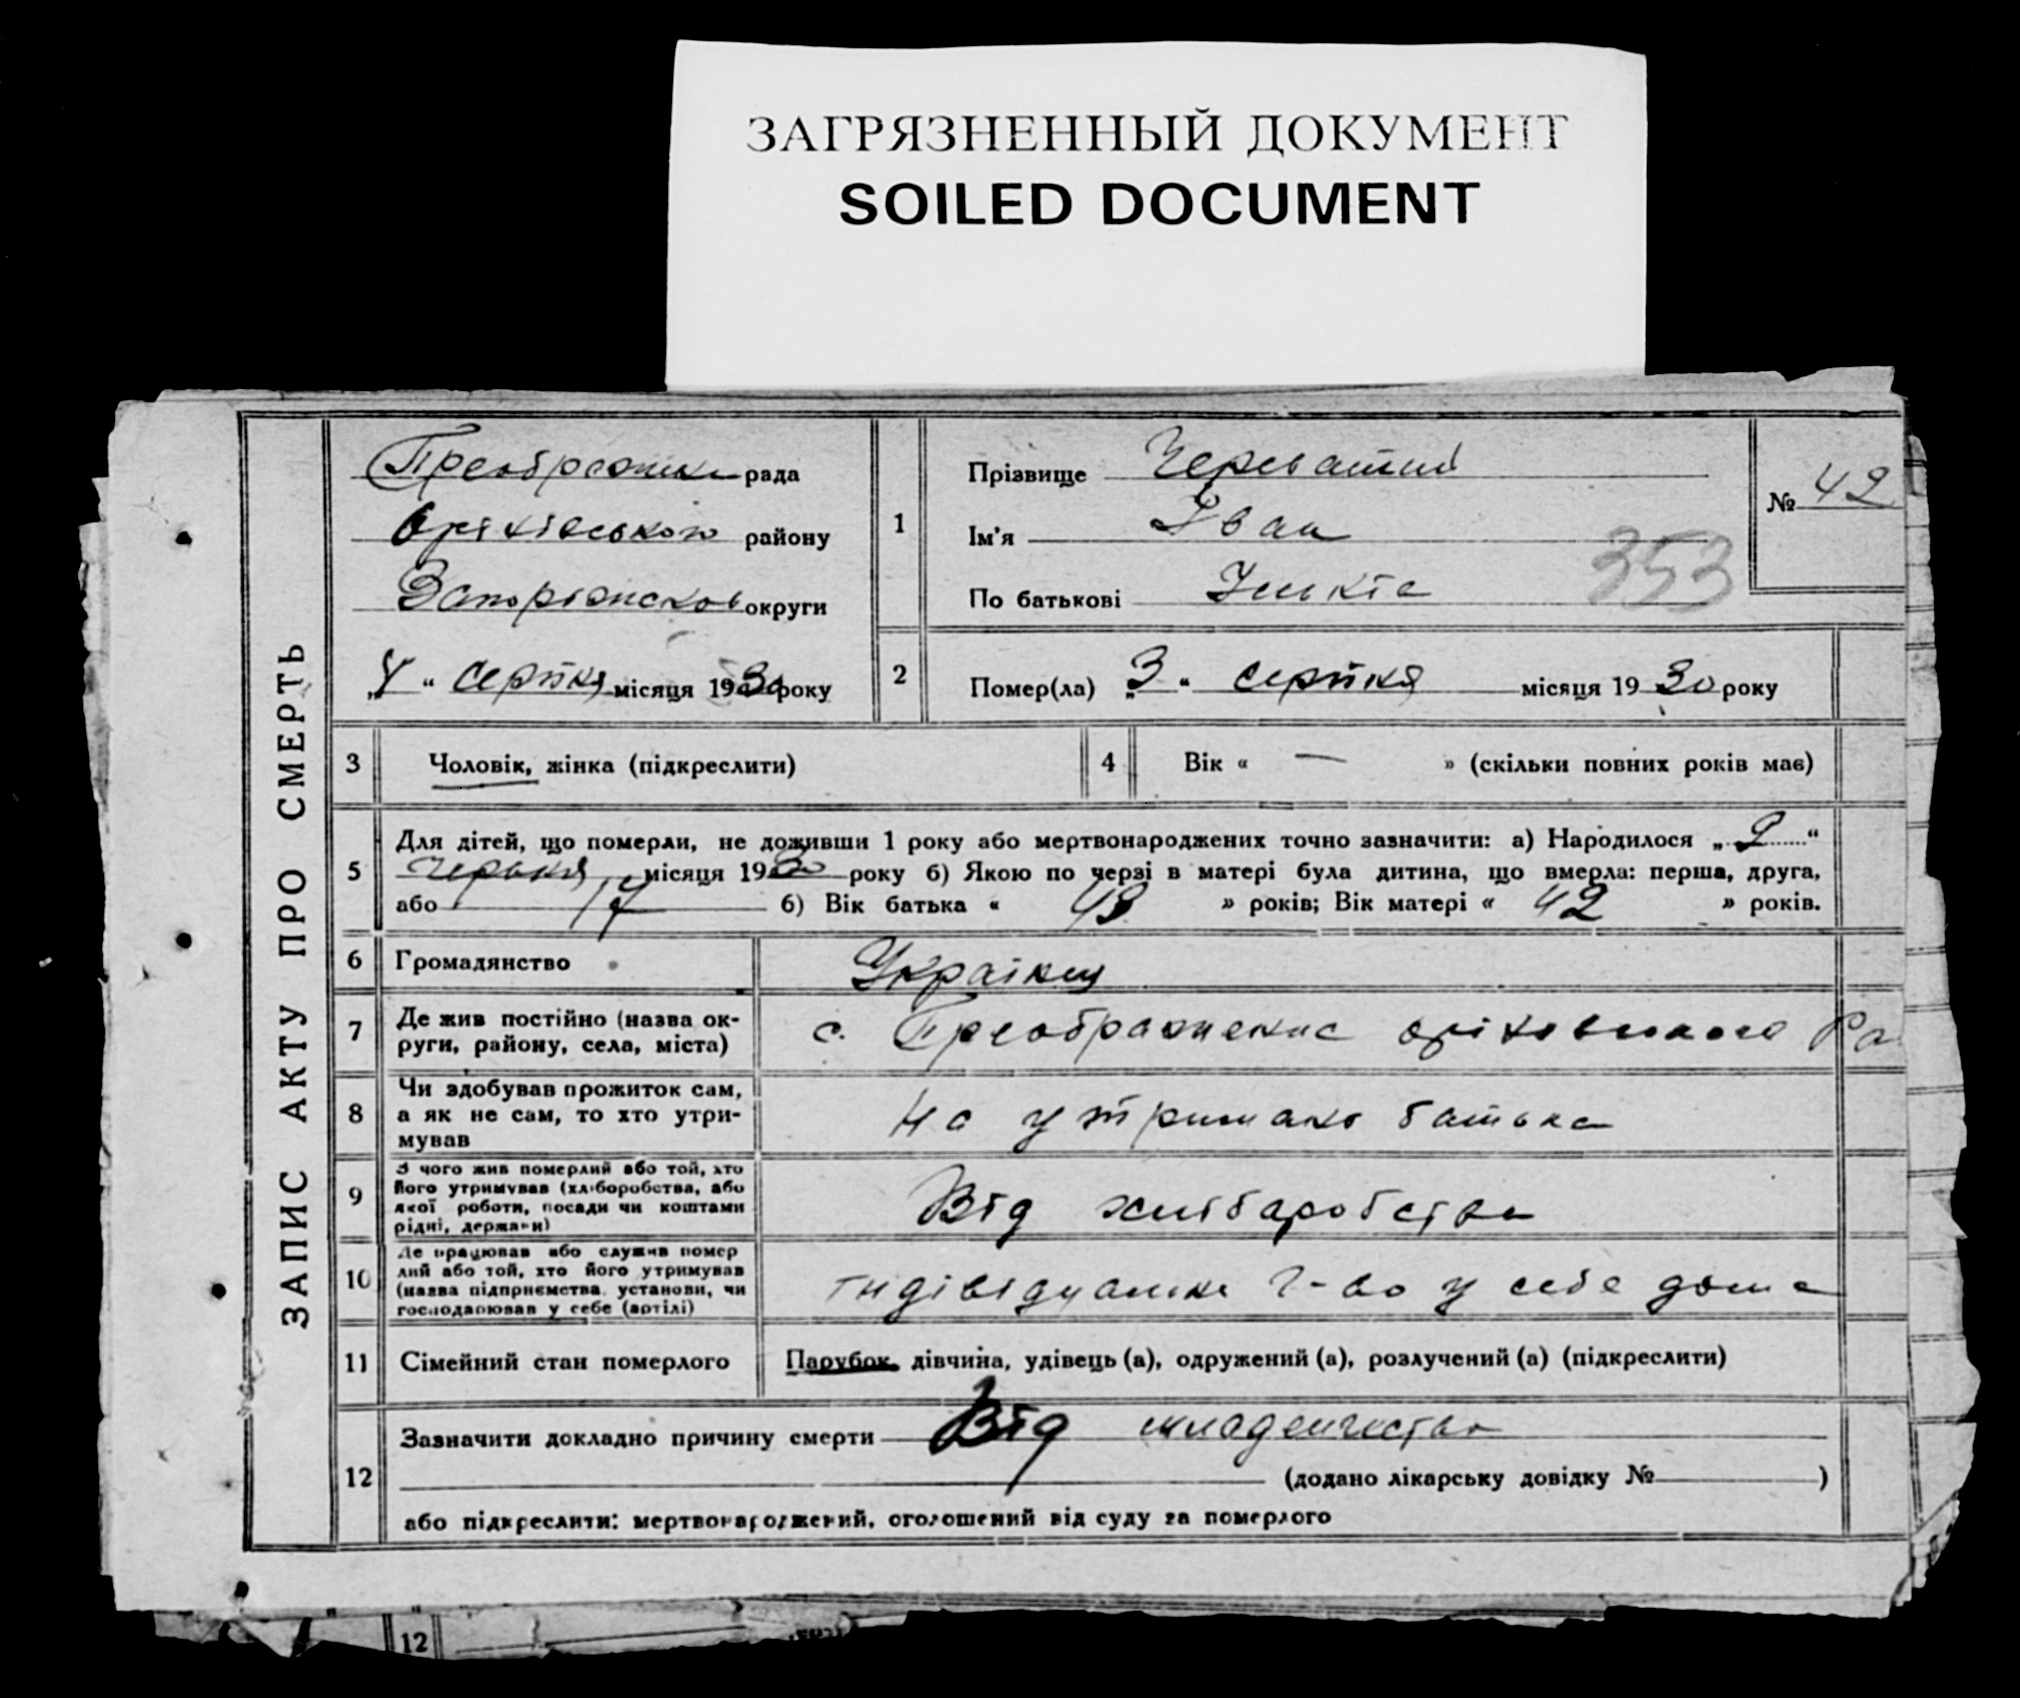 ЗАГРЯЗНЕННЫЙ ДОКУМЕНТ
SOILED DOCUMENT
ЗАПИС АКТУ ПРО СМЕРТЬ
Преображенс рада
Оріхівського району
Запоріжської округи
„4“ серпня місяця 1930 року
1
Прізвище Череватий
Ім'я Іван
По батькові
№ 42
353
2
Помер(ла) „3“ серпня місяця 1930 року
3
Чоловік, жінка (підкреслити)
4
Вік « — » (скільки повних років має)
5
Для дітей, що померли, не доживши 1 року або мертвонароджених точно зазначити: а) Народилося „2“
червня місяця 1930 року б) Якою по черзі в матері була дитина, що вмерла: перша, друга,
або б) Вік батька « 43 » років; Вік матері « 42 » років.
6
Громадянство
Українц
7
Де жив постійно (назва ок-
руги, району, села, міста)
с. Преображенка оріховського Ра
8
Чи здобував прожиток сам,
а як не сам, то хто утри-
мував
На утриманю батька
9
З чого жив померлий або той, хто
його утримував (хліборобства, або
якої роботи, посади чи коштами
рідні, держави)
Від хліборобства
10
Де працював або служив помер
лий або той, хто його утримував
(назва підприємства, установи, чи
господарював у себе (артілі)
г-во у себе дома
11
Сімейний стан померлого
Парубок, дівчина, удівець (а), одружений (а), розлучений (а) (підкреслити)
12
Зазначити докладно причину смерти Від младенчества
(додано лікарську довідку № )
або підкреслити: мертвонароджений, оголошений від суду за померлого
12